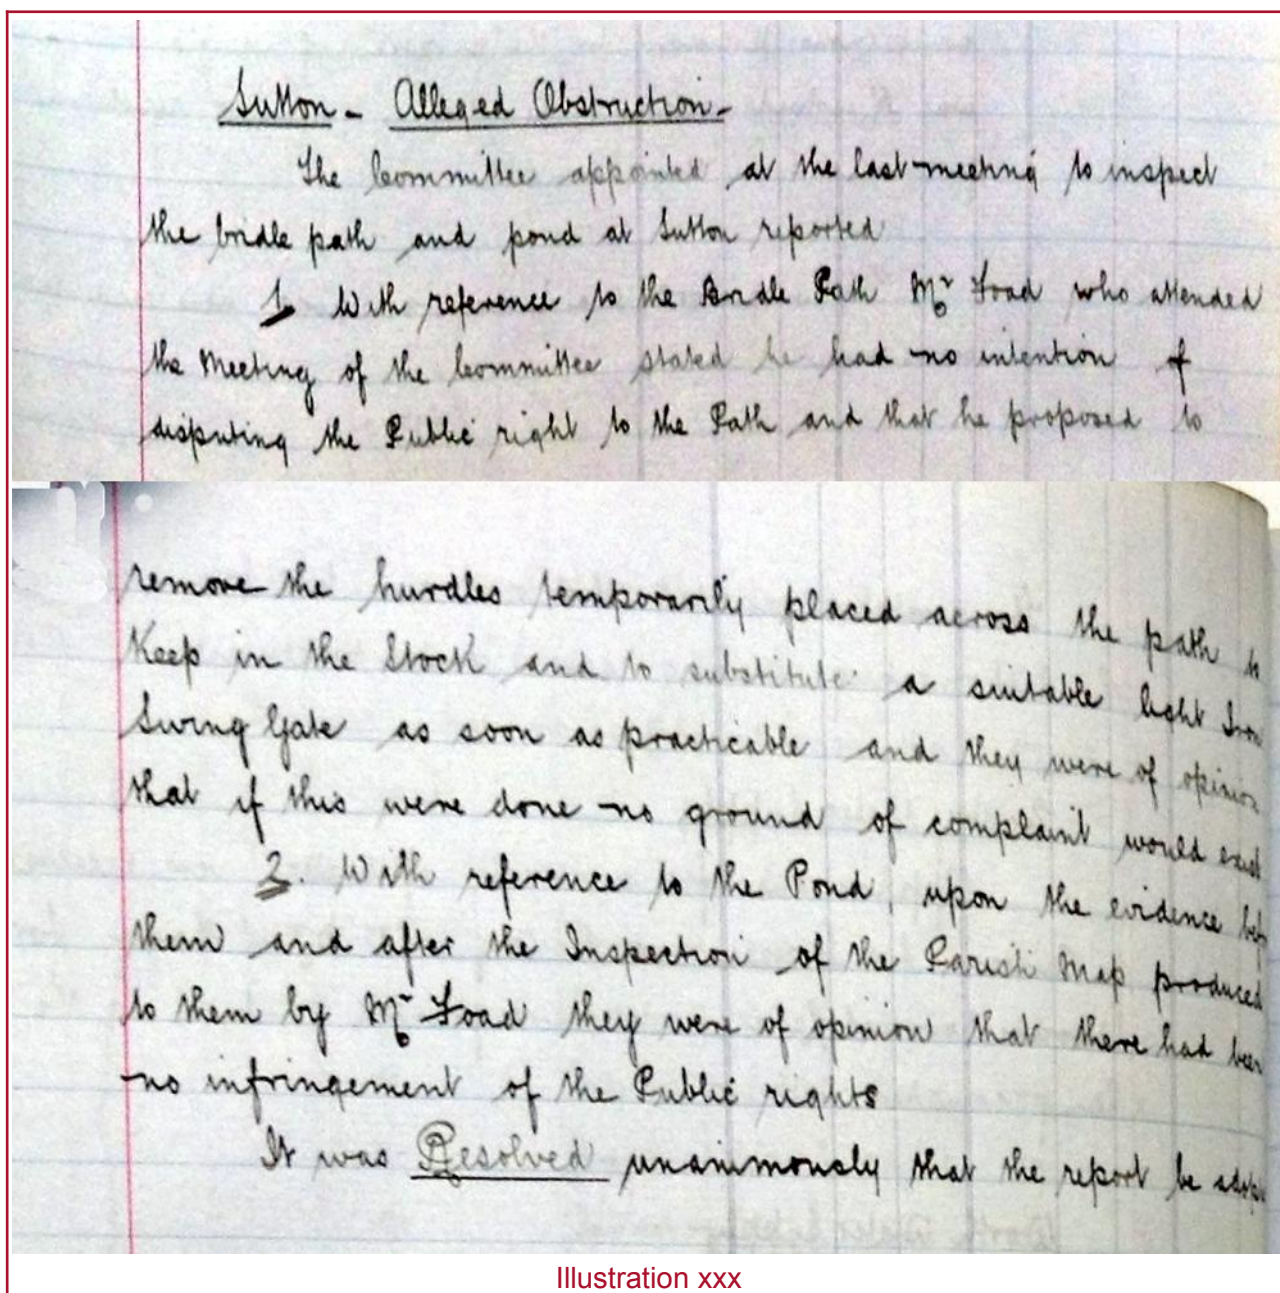 Sutton - Alleged Obstruction -
The Committee appointed at the last meeting to inspect
the bridle path and pond at Sutton reported
1 With reference to the Bridle Path Mr Foad who attended
the Meeting of the Committee stated he had no intention of
disputing the Public right to the Path and that he proposed to
remove the hurdles temporarily placed across the path to
Keep in the Stock and to substitute a suitable light Iron
Swing Gate as soon as practicable and they were of opinion
that if this were done no ground of complaint would exist
2. With reference to the Pond, upon the evidence bef
them and after the Inspection of the Parish Map produced
to them by Mr Foad they were of opinion that there had been
no infringement of the Public rights
It was Resolved unanimously that the report be adop
Illustration xxx